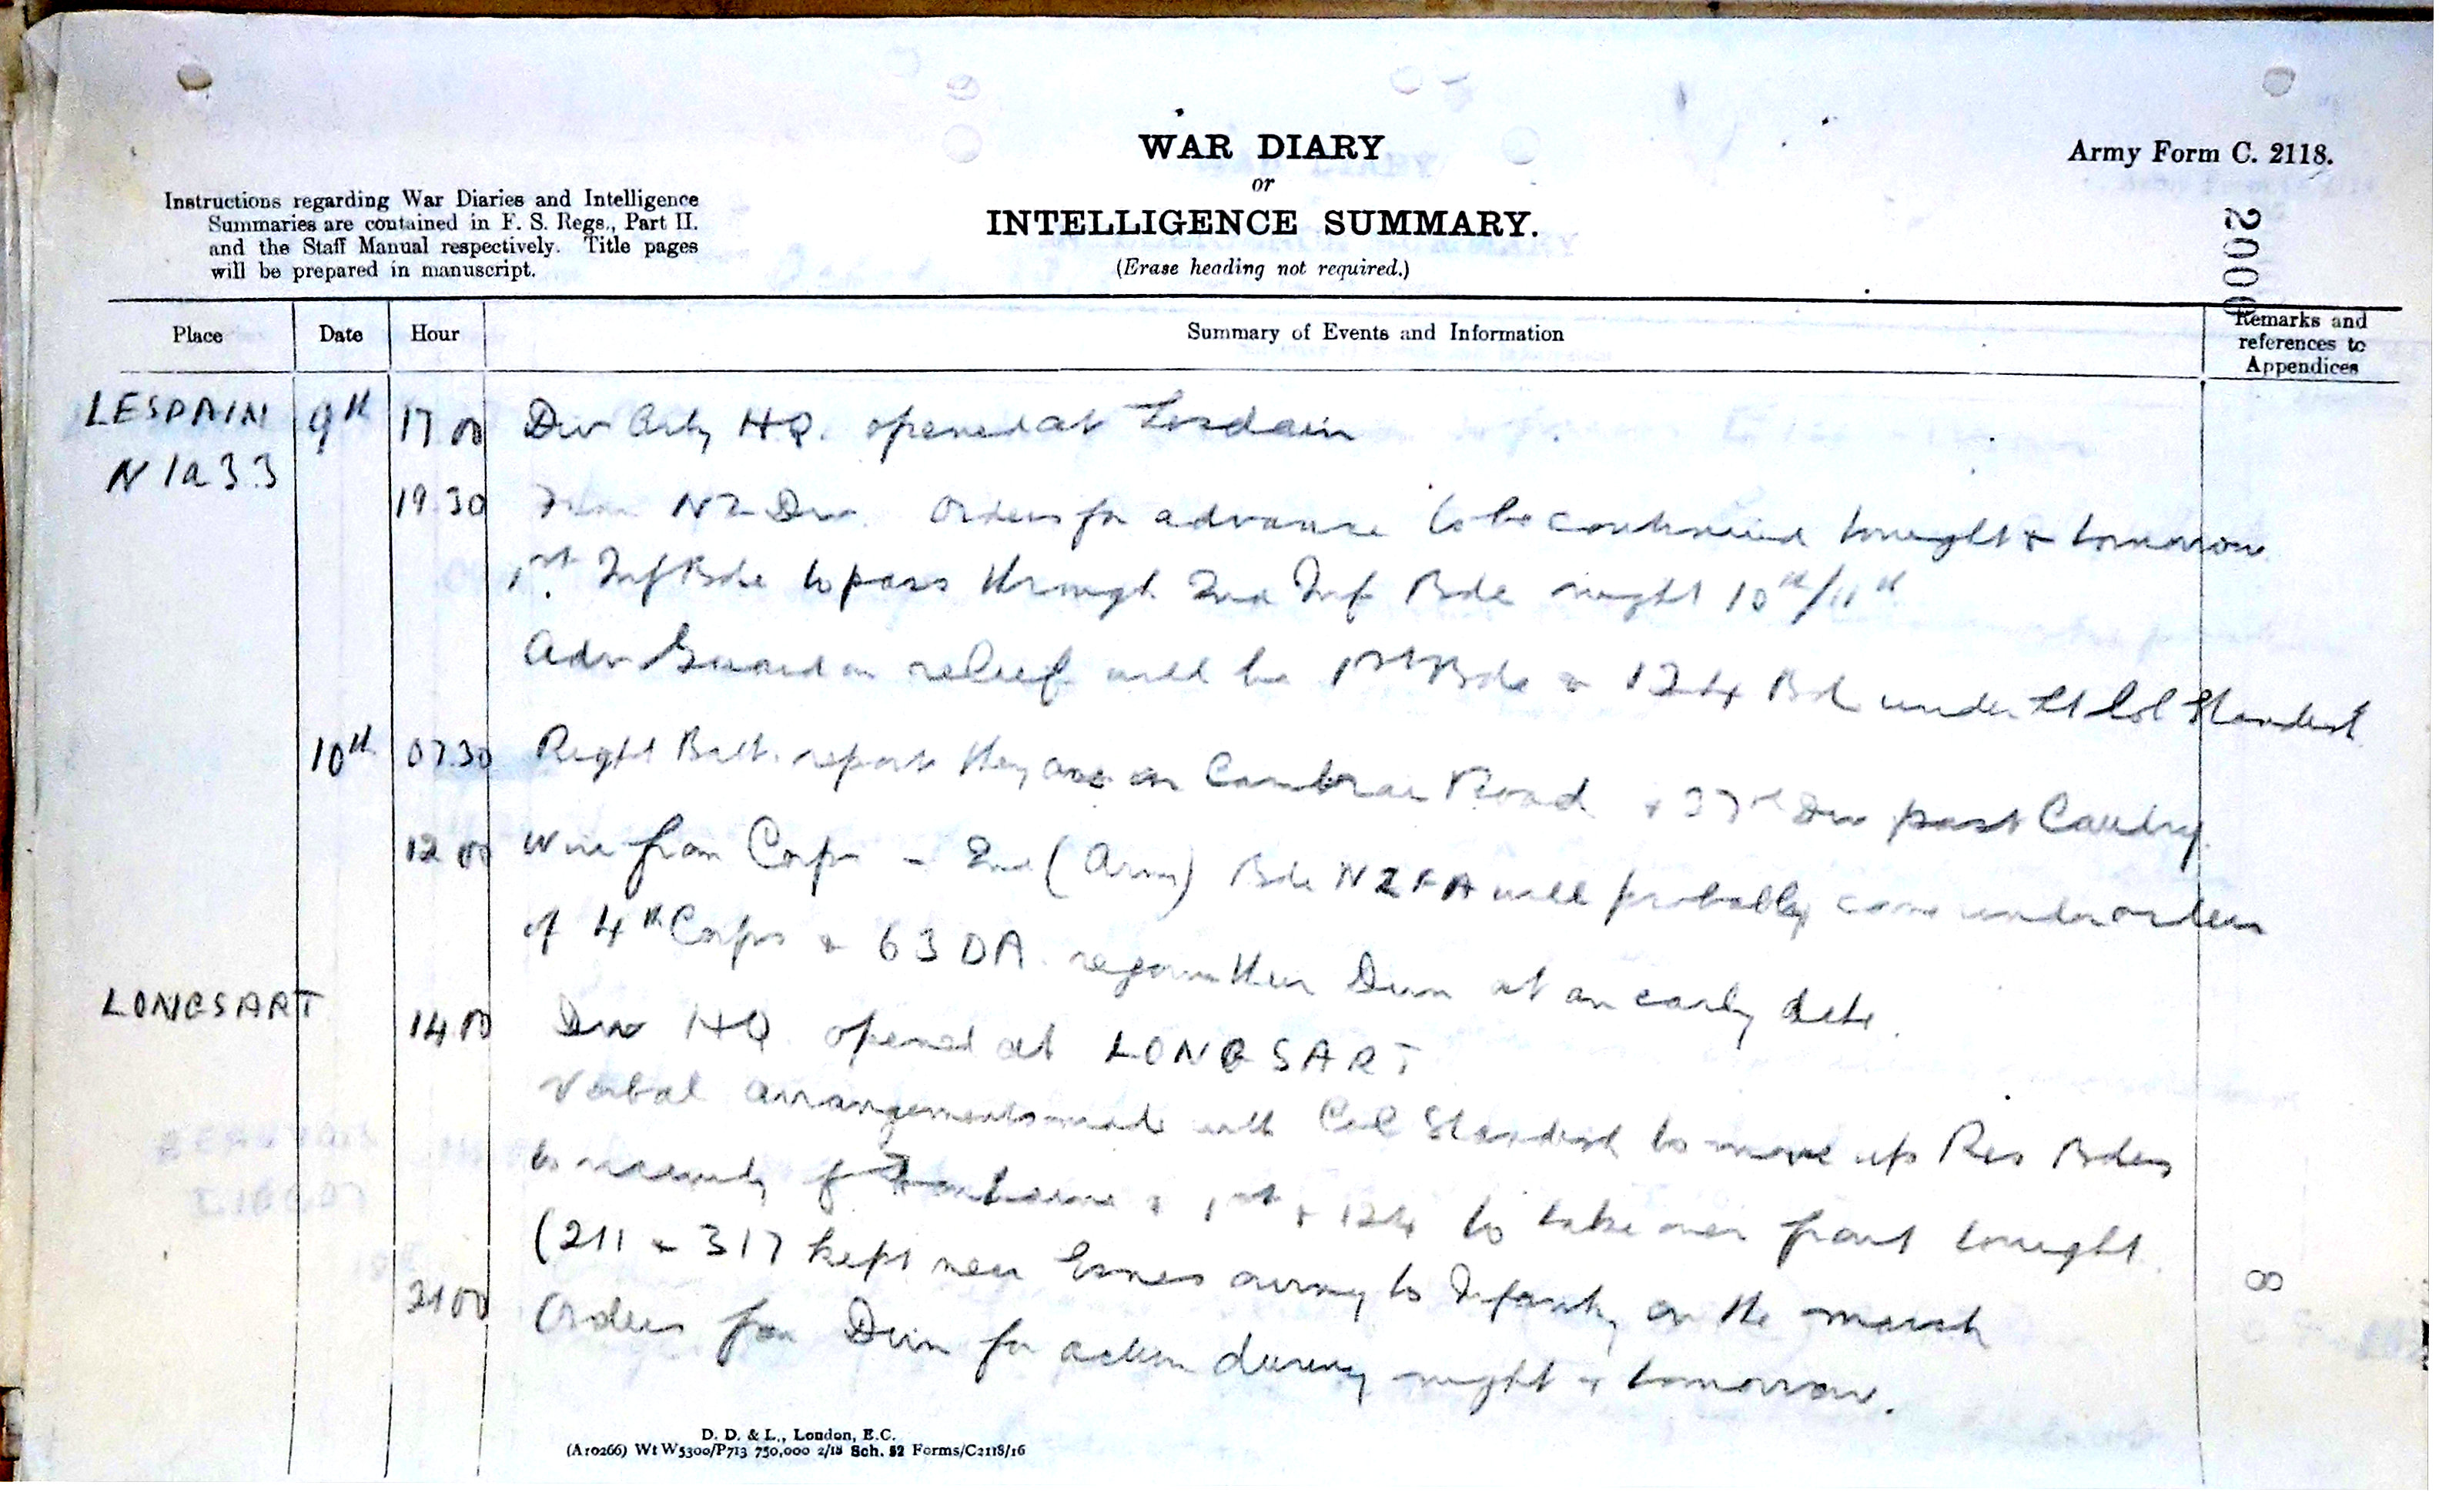 WAR DIARY
or
INTELLIGENCE SUMMARY.
(Erase heading not required.)
Army Form C. 2118.
Instructions regarding War Diaries and Intelligence
Summaries are contained in F. S. Regs., Part II.
and the Staff Manual respectively. Title pages
will be prepared in manuscript.
0002
Place Date Hour Summary of Events and Information Remarks and references to Appendices
LESDAIN 9th 17 00 Div Arty HQ. opened at Lesdain
N 1a 3.3
19.30 From NZ Div. Orders for advance to be continued tonight & tomorrow.
1st Inf Bde to pass through 2nd Inf Bde night 10th/11th
Adv Guard on relief will be 1st Bde & 124 Bde under Lt Col Standish
10th 07.30 Right Batt. report they are on Cambrai Road & 37th Div past Caudry.
12 00 Wire from Corps - 2nd (Army) Bde NZFA will probably come under orders
of 4th Corps & 63 DA. rejoin their Divn at an early date.
LONGSART 14 00 Div HQ opened at LONGSART
Verbal arrangements made with Col Standish to move up Res Bdes
to vicinity of Fontaine & 1st & 124 to take over front tonight.
(211 & 317 kept near Esnes owing to Infantry on the march
21 00 Orders from Divn for action during night & tomorrow.
8
D. D. & L., London, E.C.
(A10266) Wt W5300/P713 750,000 2/18 Sch. 52 Forms/C2118/16